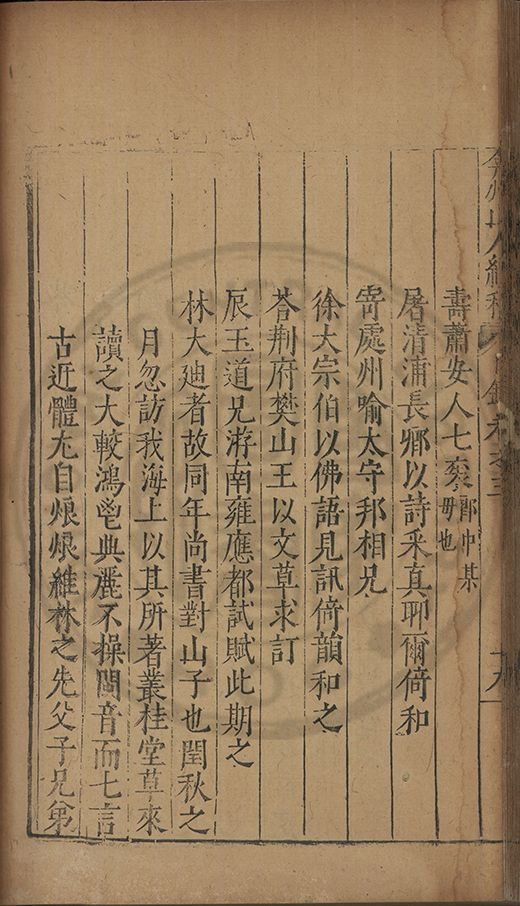 弇州山人續稿 目錄卷之三 十八
壽蕭安人七袠郎中某母也
屠清浦長卿以詩来真聊爾倚和
寄處州喻太守邦相兄
徐大宗伯以佛語見訊倚韻和之
荅荆府樊山王以文草求訂
辰玉道兄游南雍應都試賦此期之
林大廸者故同年尚書對山子也閏秋之
月忽訪我海上以其所著叢桂堂草來
讀之大較鴻鬯典麗不操閩音而七言
古近體尢自烺烺維林之先父子兄弟